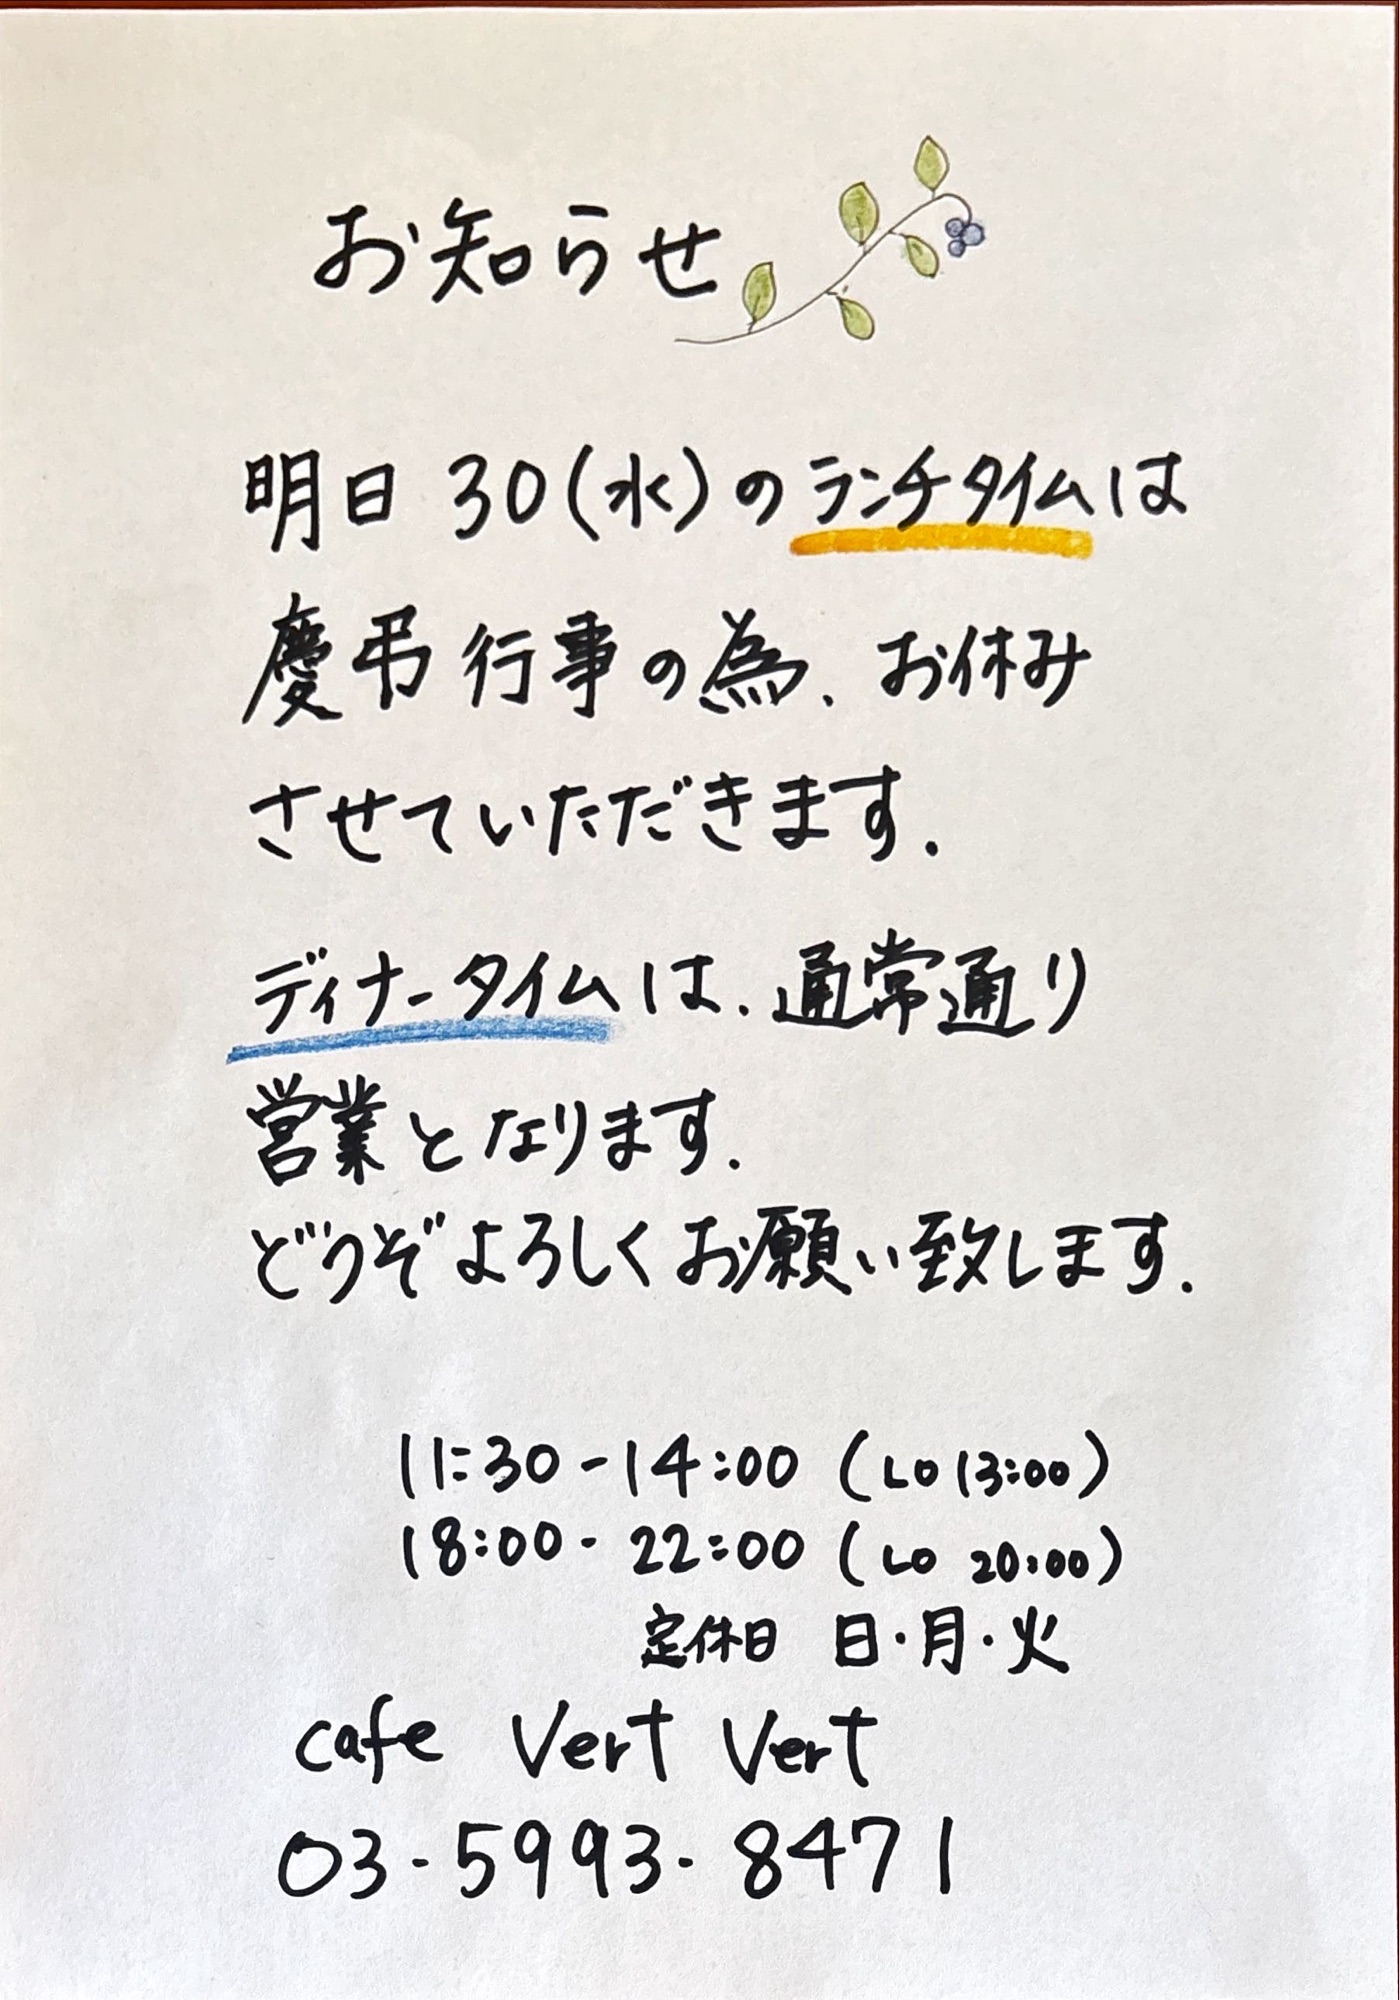 お知らせ
明日 30(水)のランチタイムは
慶弔行事の為、お休み
させていただきます.
ディナータイムは、通常通り
営業となります.
どうぞよろしくお願い致します.
11:30-14:00 (LO 13:00)
18:00-22:00 (LO 20:00)
定休日 日・月・火
cafe Vert Vert
03-5993-8471